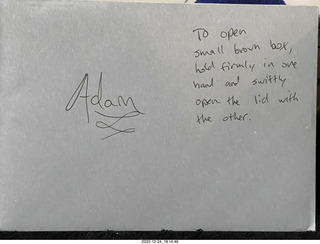 To open
small brown box,
hold firmly in one
hand and swiftly
open the lid with
the other.
Adam
2022-12-24_18:14:46